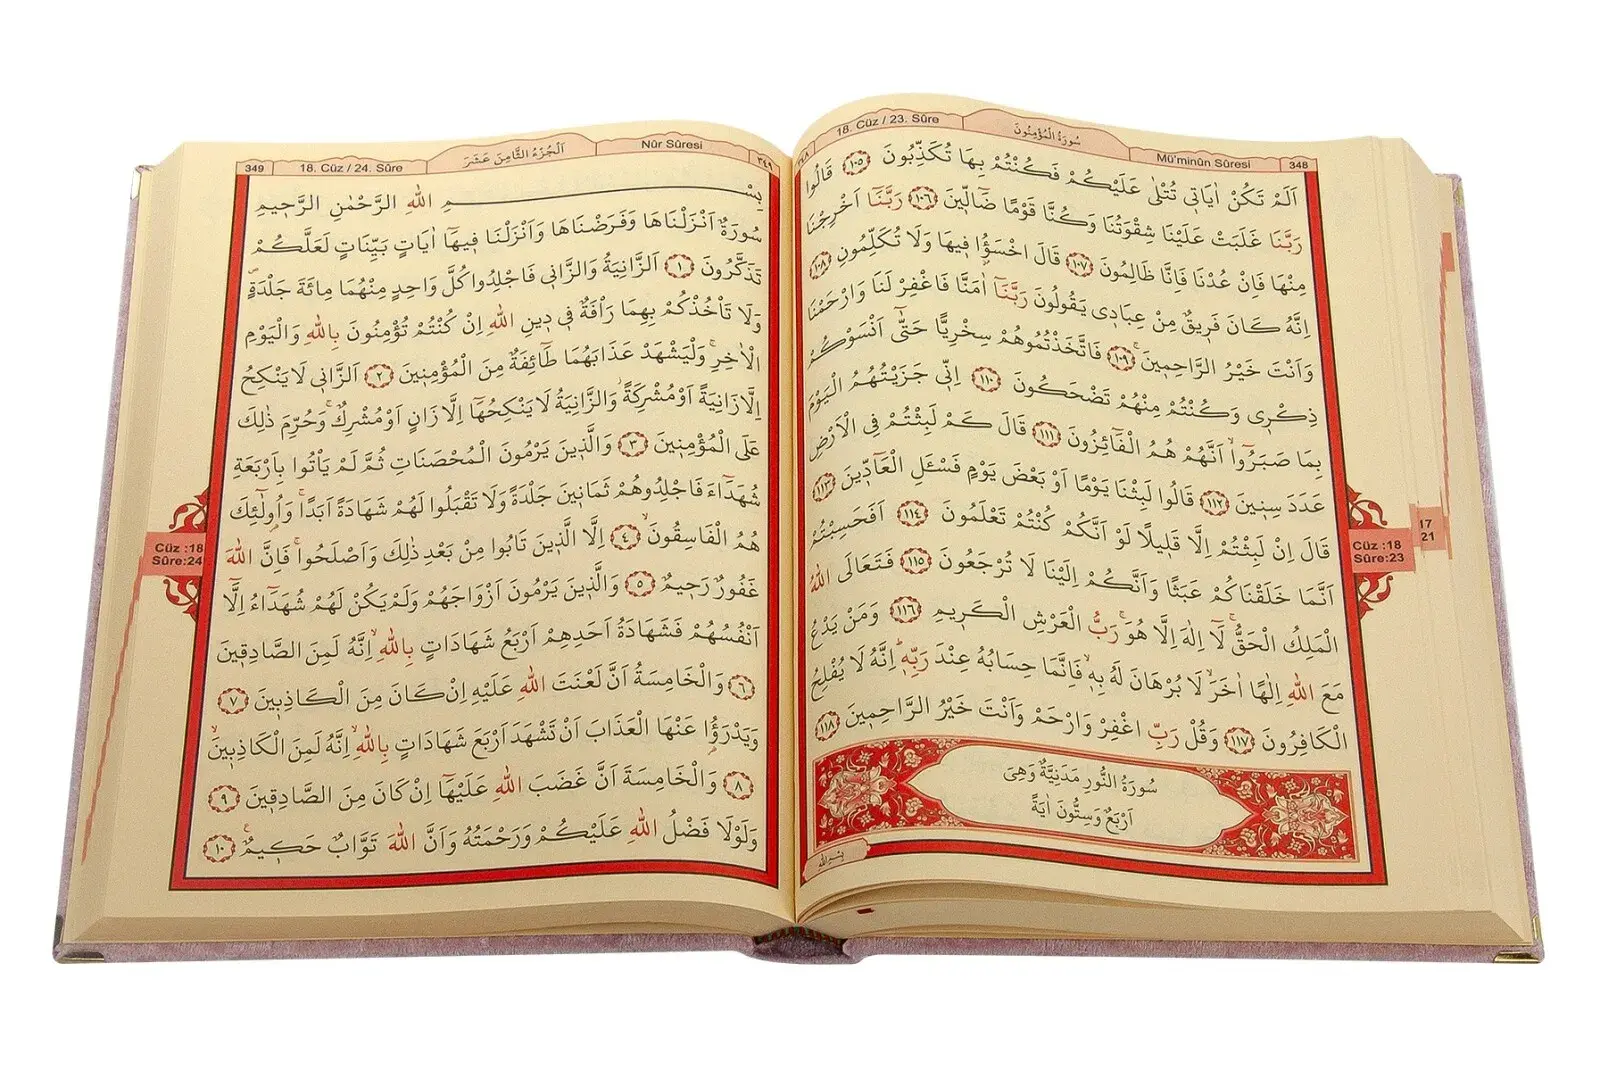 348
Mü'minûn Sûresi
سُورَةُ الْمُؤْمِنُونَ
18. Cüz / 23. Sûre
اَلَمْ تَكُنْ اٰيَاتٖي تُتْلٰى عَلَيْكُمْ فَكُنْتُمْ بِهَا تُكَذِّبُونَ ﴿١٠٥﴾ قَالُوا
رَبَّنَا غَلَبَتْ عَلَيْنَا شِقْوَتُنَا وَكُنَّا قَوْمًا ضَٓالّٖينَ ﴿١٠٦﴾ رَبَّنَٓا اَخْرِجْنَا
مِنْهَا فَاِنْ عُدْنَا فَاِنَّا ظَالِمُونَ ﴿١٠٧﴾ قَالَ اخْسَؤُ۫ا فٖيهَا وَلَا تُكَلِّمُونِ ﴿١٠٨﴾
اِنَّهُ كَانَ فَرٖيقٌ مِنْ عِبَادٖي يَقُولُونَ رَبَّنَٓا اٰمَنَّا فَاغْفِرْ لَنَا وَارْحَمْنَا
وَاَنْتَ خَيْرُ الرَّاحِمٖينَ ﴿١٠٩﴾ فَاتَّخَذْتُمُوهُمْ سِخْرِيًّا حَتّٰٓى اَنْسَوْكُمْ
ذِكْرٖي وَكُنْتُمْ مِنْهُمْ تَضْحَكُونَ ﴿١١٠﴾ اِنّٖي جَزَيْتُهُمُ الْيَوْمَ
بِمَا صَبَرُٓوا اَنَّهُمْ هُمُ الْفَٓائِزُونَ ﴿١١١﴾ قَالَ كَمْ لَبِثْتُمْ فِي الْاَرْضِ
عَدَدَ سِنٖينَ ﴿١١٢﴾ قَالُوا لَبِثْنَا يَوْمًا اَوْ بَعْضَ يَوْمٍ فَسْـَٔلِ الْعَٓادّٖينَ ﴿١١٣﴾
قَالَ اِنْ لَبِثْتُمْ اِلَّا قَلٖيلًا لَوْ اَنَّكُمْ كُنْتُمْ تَعْلَمُونَ ﴿١١٤﴾ اَفَحَسِبْتُمْ
اَنَّمَا خَلَقْنَاكُمْ عَبَثًا وَاَنَّكُمْ اِلَيْنَا لَا تُرْجَعُونَ ﴿١١٥﴾ فَتَعَالَى اللّٰهُ
الْمَلِكُ الْحَقُّۚ لَٓا اِلٰهَ اِلَّا هُوَۚ رَبُّ الْعَرْشِ الْكَرٖيمِ ﴿١١٦﴾ وَمَنْ يَدْعُ
مَعَ اللّٰهِ اِلٰهًا اٰخَرَۙ لَا بُرْهَانَ لَهُ بِهٖۙ فَاِنَّمَا حِسَابُهُ عِنْدَ رَبِّهٖؕ اِنَّهُ لَا يُفْلِحُ
الْكَافِرُونَ ﴿١١٧﴾ وَقُلْ رَبِّ اغْفِرْ وَارْحَمْ وَاَنْتَ خَيْرُ الرَّاحِمٖينَ ﴿١١٨﴾
سُورَةُ النُّورِ مَدَنِيَّةٌ وَهِيَ
اَرْبَعٌ وَسِتُّونَ اٰيَةً
بِسْمِ اللّٰهِ
Cüz :18
Sûre:23
17
21
٣٤٩
Nûr Sûresi
اَلْجُزْءُ الثَّامِنَ عَشَرَ
18. Cüz / 24. Sûre
349
بِسْمِ اللّٰهِ الرَّحْمٰنِ الرَّحٖيمِ
سُورَةٌ اَنْزَلْنَاهَا وَفَرَضْنَاهَا وَاَنْزَلْنَا فٖيهَٓا اٰيَاتٍ بَيِّنَاتٍ لَعَلَّكُمْ
تَذَكَّرُونَ ﴿١﴾ اَلزَّانِيَةُ وَالزَّانٖي فَاجْلِدُوا كُلَّ وَاحِدٍ مِنْهُمَا مِائَةَ جَلْدَةٍࣕ
وَلَا تَأْخُذْكُمْ بِهِمَا رَأْفَةٌ فٖي دٖينِ اللّٰهِ اِنْ كُنْتُمْ تُؤْمِنُونَ بِاللّٰهِ وَالْيَوْمِ
الْاٰخِرِۚ وَلْيَشْهَدْ عَذَابَهُمَا طَٓائِفَةٌ مِنَ الْمُؤْمِنٖينَ ﴿٢﴾ اَلزَّانٖي لَا يَنْكِحُ
اِلَّا زَانِيَةً اَوْ مُشْرِكَةًؗ وَالزَّانِيَةُ لَا يَنْكِحُهَٓا اِلَّا زَانٍ اَوْ مُشْرِكٌۚ وَحُرِّمَ ذٰلِكَ
عَلَى الْمُؤْمِنٖينَ ﴿٣﴾ وَالَّذٖينَ يَرْمُونَ الْمُحْصَنَاتِ ثُمَّ لَمْ يَأْتُوا بِاَرْبَعَةِ
شُهَدَٓاءَ فَاجْلِدُوهُمْ ثَمَانٖينَ جَلْدَةً وَلَا تَقْبَلُوا لَهُمْ شَهَادَةً اَبَدًاۚ وَاُو۬لٰٓئِكَ
هُمُ الْفَاسِقُونَۙ ﴿٤﴾ اِلَّا الَّذٖينَ تَابُوا مِنْ بَعْدِ ذٰلِكَ وَاَصْلَحُواۚ فَاِنَّ اللّٰهَ
غَفُورٌ رَحٖيمٌ ﴿٥﴾ وَالَّذٖينَ يَرْمُونَ اَزْوَاجَهُمْ وَلَمْ يَكُنْ لَهُمْ شُهَدَٓاءُ اِلَّٓا
اَنْفُسُهُمْ فَشَهَادَةُ اَحَدِهِمْ اَرْبَعُ شَهَادَاتٍ بِاللّٰهِۙ اِنَّهُ لَمِنَ الصَّادِقٖينَ
﴿٦﴾ وَالْخَامِسَةُ اَنَّ لَعْنَتَ اللّٰهِ عَلَيْهِ اِنْ كَانَ مِنَ الْكَاذِبٖينَ ﴿٧﴾
وَيَدْرَؤُ۬ا عَنْهَا الْعَذَابَ اَنْ تَشْهَدَ اَرْبَعَ شَهَادَاتٍ بِاللّٰهِۙ اِنَّهُ لَمِنَ الْكَاذِبٖينَۙ
﴿٨﴾ وَالْخَامِسَةَ اَنَّ غَضَبَ اللّٰهِ عَلَيْهَٓا اِنْ كَانَ مِنَ الصَّادِقٖينَ ﴿٩﴾
وَلَوْلَا فَضْلُ اللّٰهِ عَلَيْكُمْ وَرَحْمَتُهُ وَاَنَّ اللّٰهَ تَوَّابٌ حَكٖيمٌ۟ ﴿١٠﴾
Cüz :18
Sûre:24